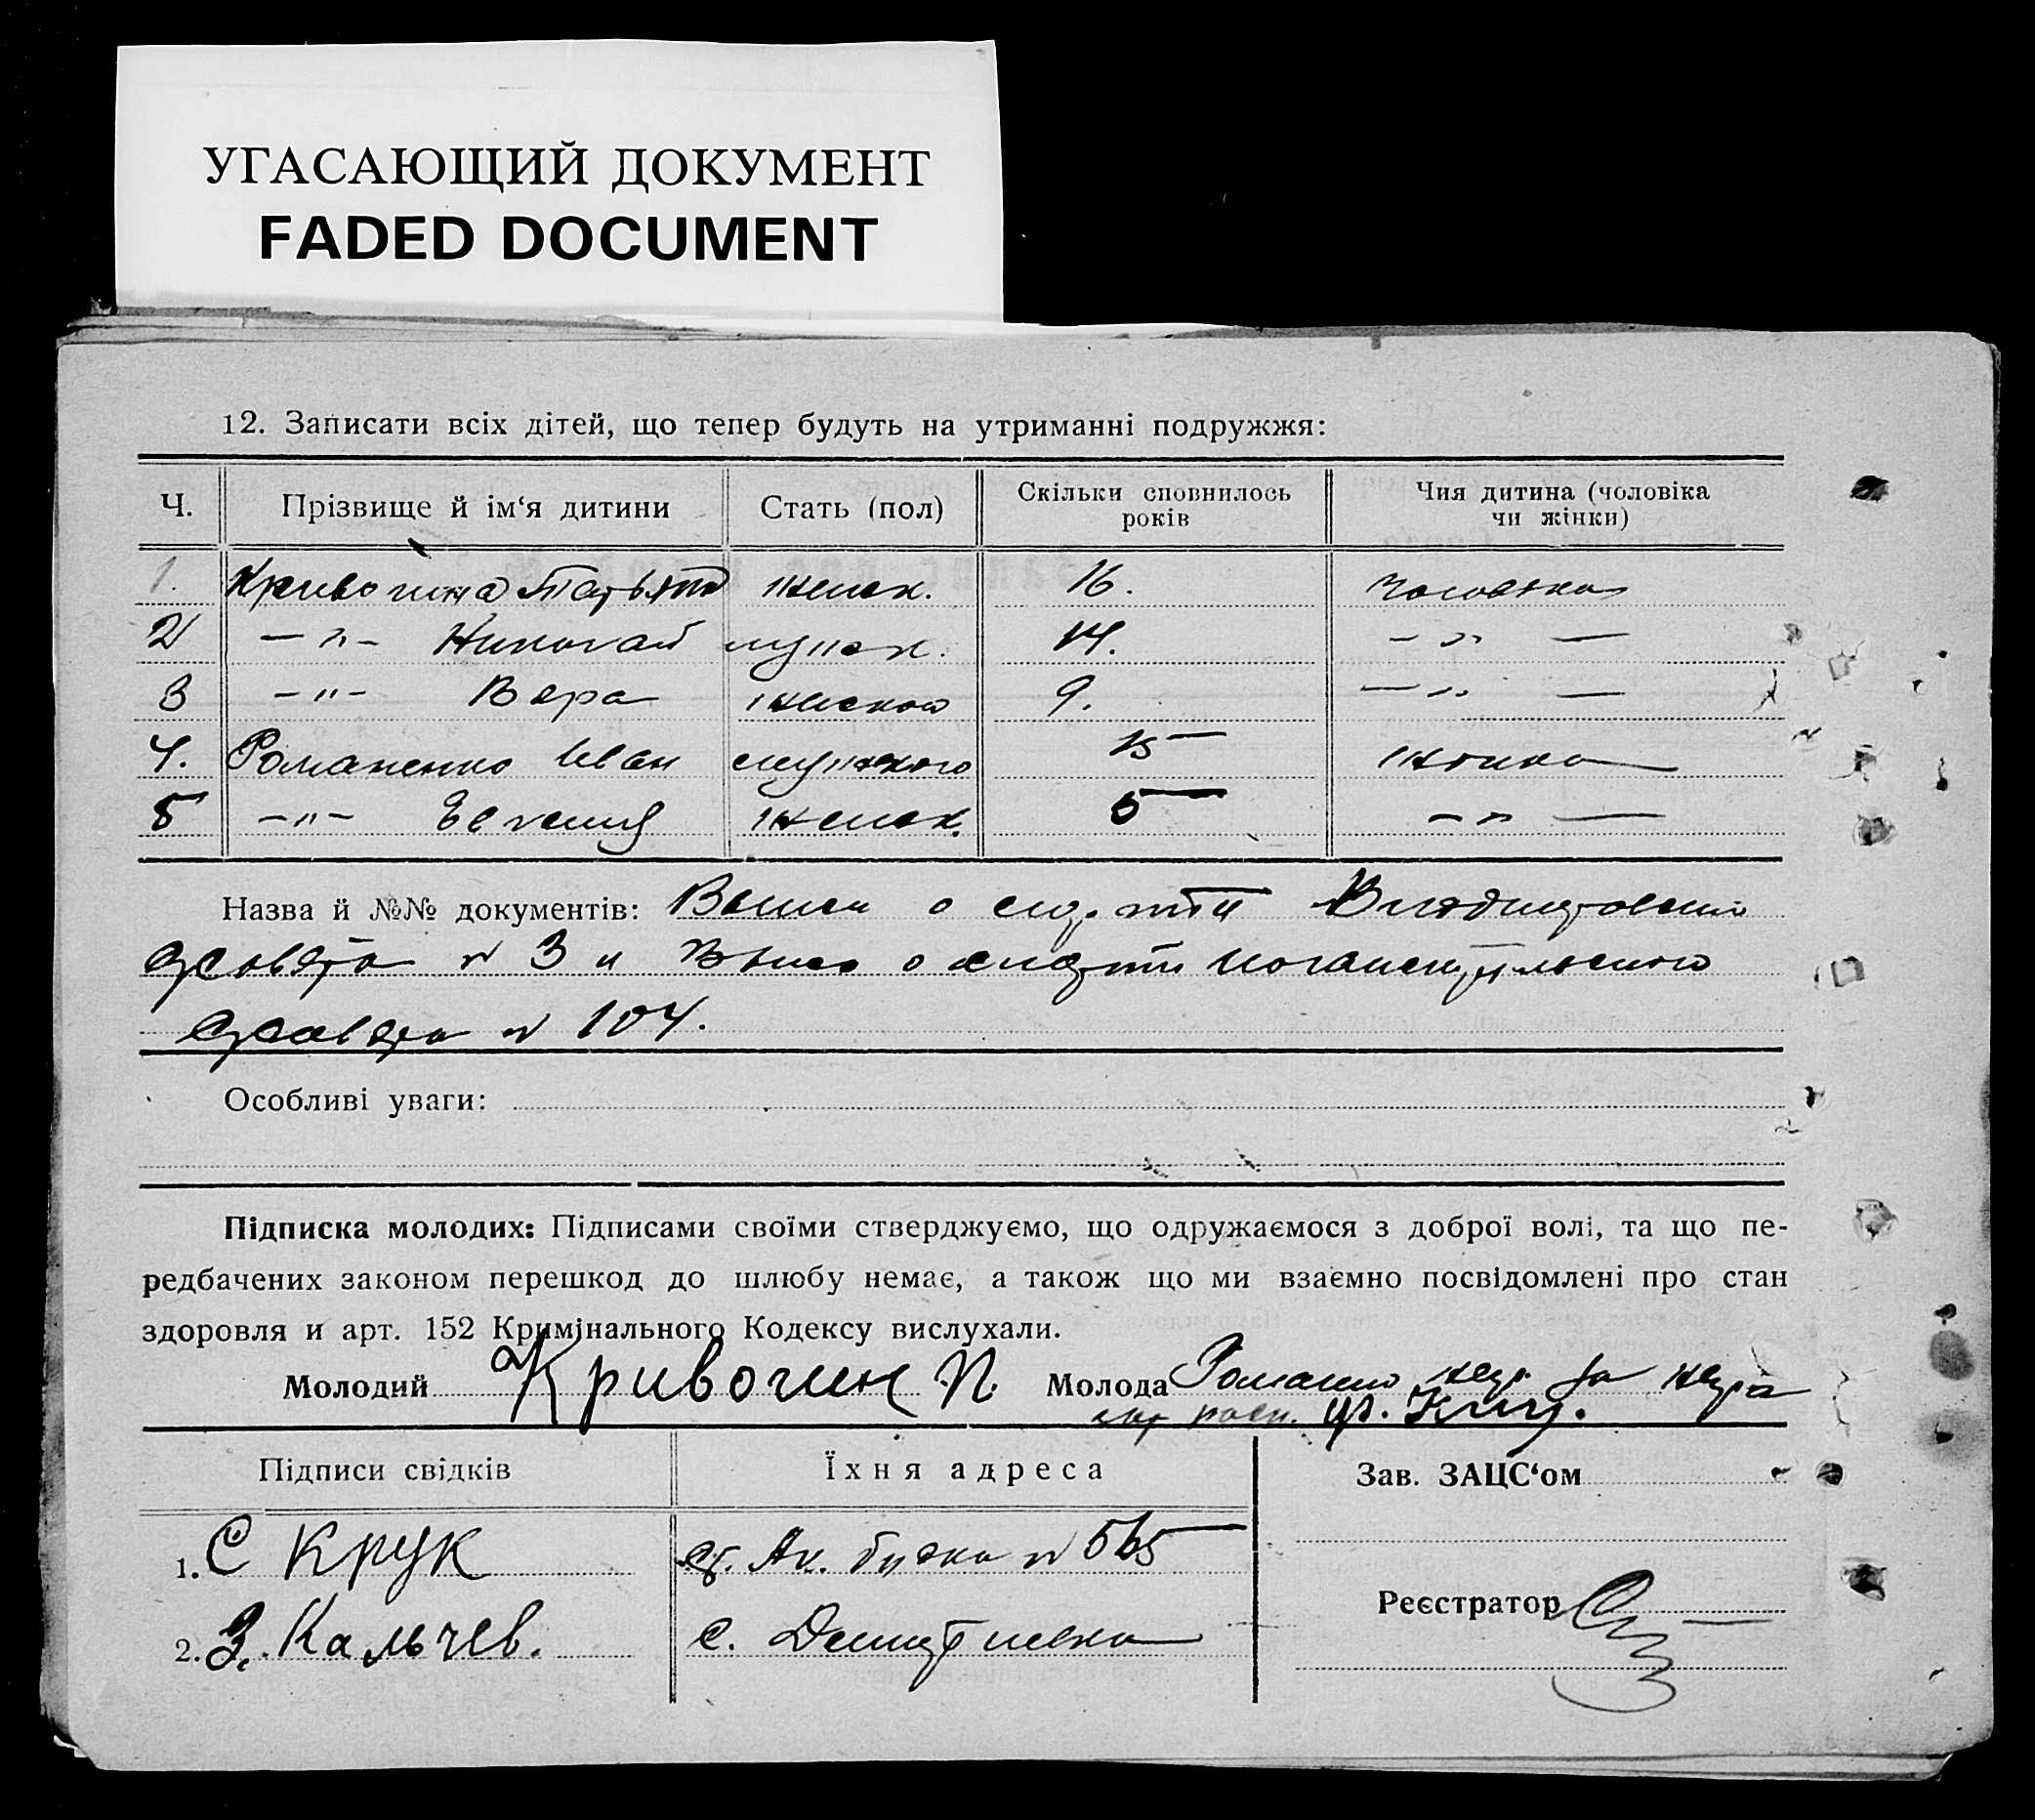 УГАСАЮЩИЙ ДОКУМЕНТ
FADED DOCUMENT
12. Записати всіх дітей, що тепер будуть на утриманні подружжя:
Ч. Прізвище й ім‘я дитини Стать (пол) Скільки сповнилось років Чия дитина (чоловіка чи жінки)
1. Кривогина Татьяна женск. 16. чоловіка
2 —〃— Николай мужск. 14. —〃—
3 —〃— Вера женского 9. —〃—
4. Романенко Иван мужского 15 жінка
5 —〃— Евгения женск. 5 —〃—
Назва й №№ документів: о смерти
№ 3 и о смерти
№ 104.
Особливі уваги:
Підписка молодих: Підписами своїми стверджуємо, що одружаємося з доброї волі, та що пе-
редбачених законом перешкод до шлюбу немає, а також що ми взаємно посвідомлені про стан
здоровля и арт. 152 Кримінального Кодексу вислухали.
Молодий Кривогин П. Молода
Підписи свідків Їхня адреса Зав. ЗАЦС‘ом
1. С Крук № 565
Реєстратор
2. З. Кальчев. с.